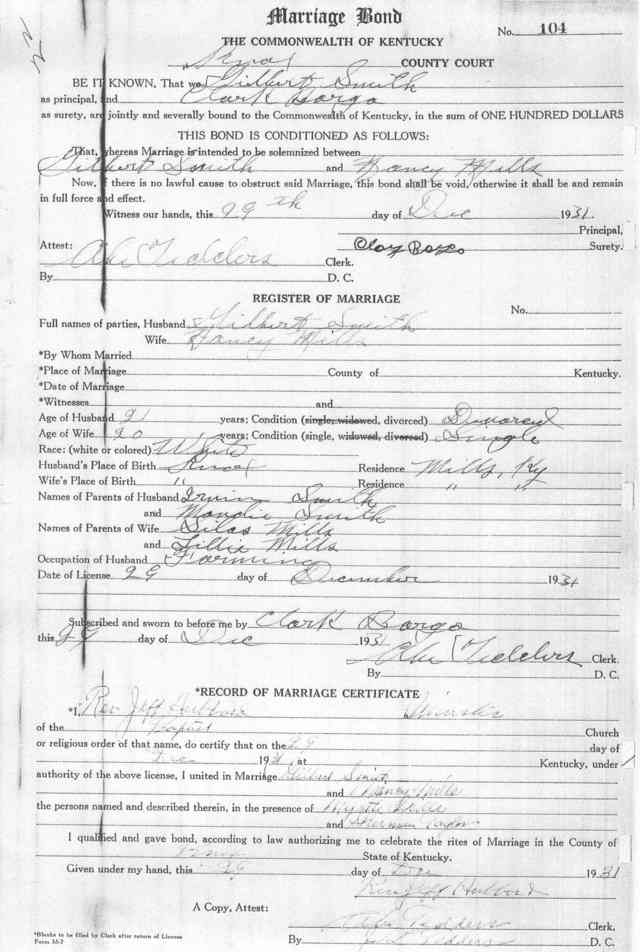 Marriage Bond
No. 104
THE COMMONWEALTH OF KENTUCKY
Knox COUNTY COURT
BE IT KNOWN, That we Gilbert Smith
as principal, and Clark Bargo
as surety, are jointly and severally bound to the Commonwealth of Kentucky, in the sum of ONE HUNDRED DOLLARS
THIS BOND IS CONDITIONED AS FOLLOWS:
That, whereas Marriage is intended to be solemnized between
Gilbert Smith and Nancy Mills
Now, if there is no lawful cause to obstruct said Marriage, this bond shall be void, otherwise it shall be and remain
in full force and effect.
Witness our hands, this 29th day of Dec 1931.
Principal,
Attest: Surety.
Clerk.
By D. C.
REGISTER OF MARRIAGE
No.
Full names of parties, Husband Gilbert Smith
Wife Nancy Mills
*By Whom Married
*Place of Marriage County of Kentucky.
*Date of Marriage
*Witnesses and
Age of Husband 21 years; Condition (single, widowed, divorced) Divorced
Age of Wife 20 years; Condition (single, widowed, divorced) Single
Race: (white or colored) White
Husband's Place of Birth Knox Residence Mills, Ky
Wife's Place of Birth " Residence " "
Names of Parents of Husband Irvin Smith
and Maudie Smith
Names of Parents of Wife Silas Mills
and Lillie Mills
Occupation of Husband Farming
Date of License 29 day of December 1931
Subscribed and sworn to before me by Clark Bargo
this 29 day of Dec 1931
Clerk.
By D. C.
*RECORD OF MARRIAGE CERTIFICATE
*I, Rev. Jeff Minister
of the Baptist Church
or religious order of that name, do certify that on the 29 day of
Dec 1931, at Kentucky, under
authority of the above license, I united in Marriage Gilbert Smith
and Nancy Mills
the persons named and described therein, in the presence of
and Sherman
I qualified and gave bond, according to law authorizing me to celebrate the rites of Marriage in the County of
Knox State of Kentucky.
Given under my hand, this 29 day of Dec 1931
A Copy, Attest:
*Blanks to be filled by Clerk after return of License
Form 10-7
By D. C.